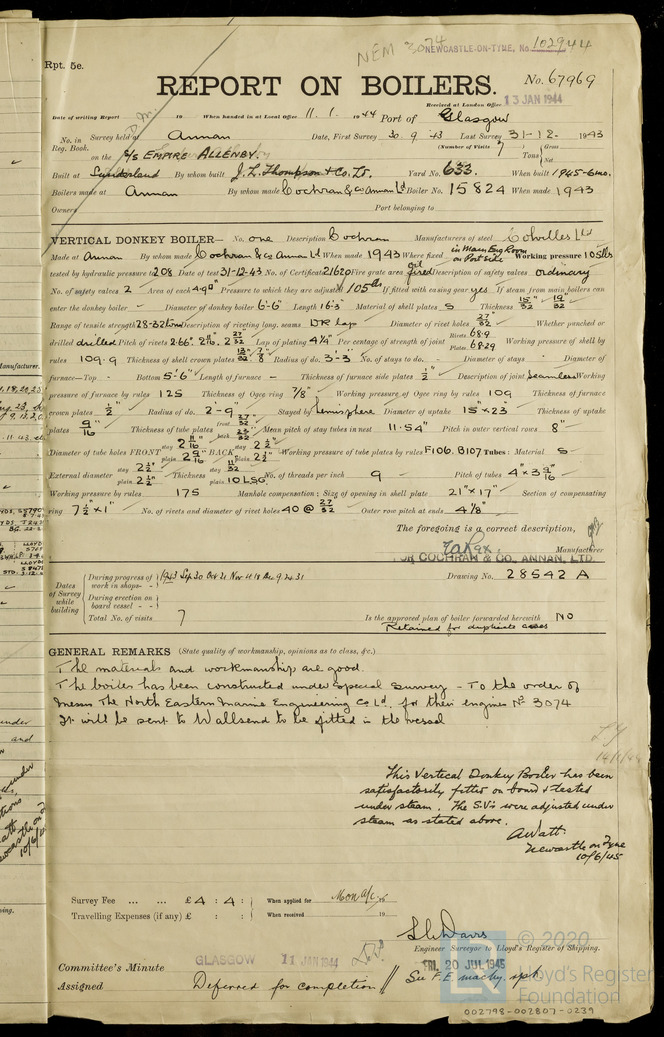 NEM 3074 NEWCASTLE-ON-TYNE, No. 102944
Rpt. 5e.
REPORT ON BOILERS.
No. 67969
Received at London Office 13 JAN 1944
Date of writing Report 19 When handed in at Local Office 11. 1. 1944 Port of Glasgow
No. in Reg. Book. Survey held at Annan Date, First Survey 30. 9. 43 Last Survey 31-12- 1943
on the S/S EMPIRE ALLENBY. (Number of Visits 7) Tons Gross Net
Built at Sunderland By whom built J. L. Thompson & Co. Lt. Yard No. 633. When built 1945-6mo.
Boilers made at Annan By whom made Cochran & Co Annan Ld Boiler No. 15824 When made 1943
Owners Port belonging to
VERTICAL DONKEY BOILER— No. one Description Cochran Manufacturers of steel Colvilles Ltd
Made at Annan By whom made Cochran & Co Annan Ld When made 1943 Where fixed in Main Eng Room on Port Side Working pressure 105 lbs
tested by hydraulic pressure to 208 Date of test 31-12-43 No. of Certificate 21620 Fire grate area oil fired Description of safety valves ordinary
No. of safety valves 2 Area of each 4.90" Pressure to which they are adjusted 105 lbs If fitted with easing gear yes If steam from main boilers can
enter the donkey boiler - Diameter of donkey boiler 6'-6" Length 16'-3" Material of shell plates S Thickness 15/32" 19/32"
Range of tensile strength 28-32 tons Description of riveting long. seams DR Lap Diameter of rivet holes 27/32" Whether punched or
drilled drilled Pitch of rivets 2.66" Lap of plating 4 1/4" Per centage of strength of joint Rivets 68.9 Plates 68.29 Working pressure of shell by
rules 109.9 Thickness of shell crown plates Radius of do. 3'-3" No. of stays to do. - Diameter of stays - Diameter of
furnace—Top - Bottom 5'-6" Length of furnace - Thickness of furnace side plates 1/2" Description of joint Seamless Working
pressure by rules 125 Thickness of Ogee ring 7/8" Working pressure of Ogee ring by rules 109 Thickness of furnace
crown plates 1/2" Radius of do. 2'-9" Stayed by hemisphere Diameter of uptake 15 x 23 Thickness of uptake
plates 9/16" Thickness of tube plates front 27/32" back Mean pitch of stay tubes in nest 11.54" Pitch in outer vertical rows 8"
Diameter of tube holes FRONT stay 2 11/16" plain 2 9/16" BACK stay 2 1/2" plain 2 1/2" Working pressure of tube plates by rules F106. B107 Tubes: Material S
External diameter stay 2 1/2" plain 2 1/2" Thickness stay 11/32 plain 10 LSG No. of threads per inch 9 Pitch of tubes 4" x 3 9/16"
Working pressure by rules 175 Manhole compensation: Size of opening in shell plate 21" x 17" Section of compensating
ring 7 1/2" x 1" No. of rivets and diameter of rivet holes 40 @ 27/32" Outer row pitch at ends 4 1/8"
The foregoing is a correct description,
Manufacturer
FOR COCHRAN & CO., ANNAN, LTD.
Dates of Survey while building
During progress of work in shops- - 1943 Sep. 30 Oct 21 Nov 4 18 Dec 9 24 31
During erection on board vessel - -
Total No. of visits 7
Drawing No. 28542 A
Is the approved plan of boiler forwarded herewith NO
Retained for duplicate cases
GENERAL REMARKS (State quality of workmanship, opinions as to class, &c.)
The materials and workmanship are good.
The boiler has been constructed under Special Survey - To the order of
Messrs The North Eastern Marine Engineering Co Ld. for their engines No 3074
It will be sent to Wallsend to be fitted in the vessel
This Vertical Donkey Boiler has been
satisfactorily fitted on board & tested
under steam. The S.V's were adjusted under
steam as stated above.
A Watt.
Newcastle on Tyne
10/6/45
Survey Fee ... ... £4 : 4 : When applied for
Travelling Expenses (if any) £ : : When received 19
Engineer Surveyor to Lloyd's Register of Shipping.
GLASGOW 11 JAN 1944
FRI. 20 JUL 1945
Committee's Minute
Assigned Deferred for completion // See F.E. machy. rpt.
© 2020
Lloyd's Register
Foundation
002798-002807-0239